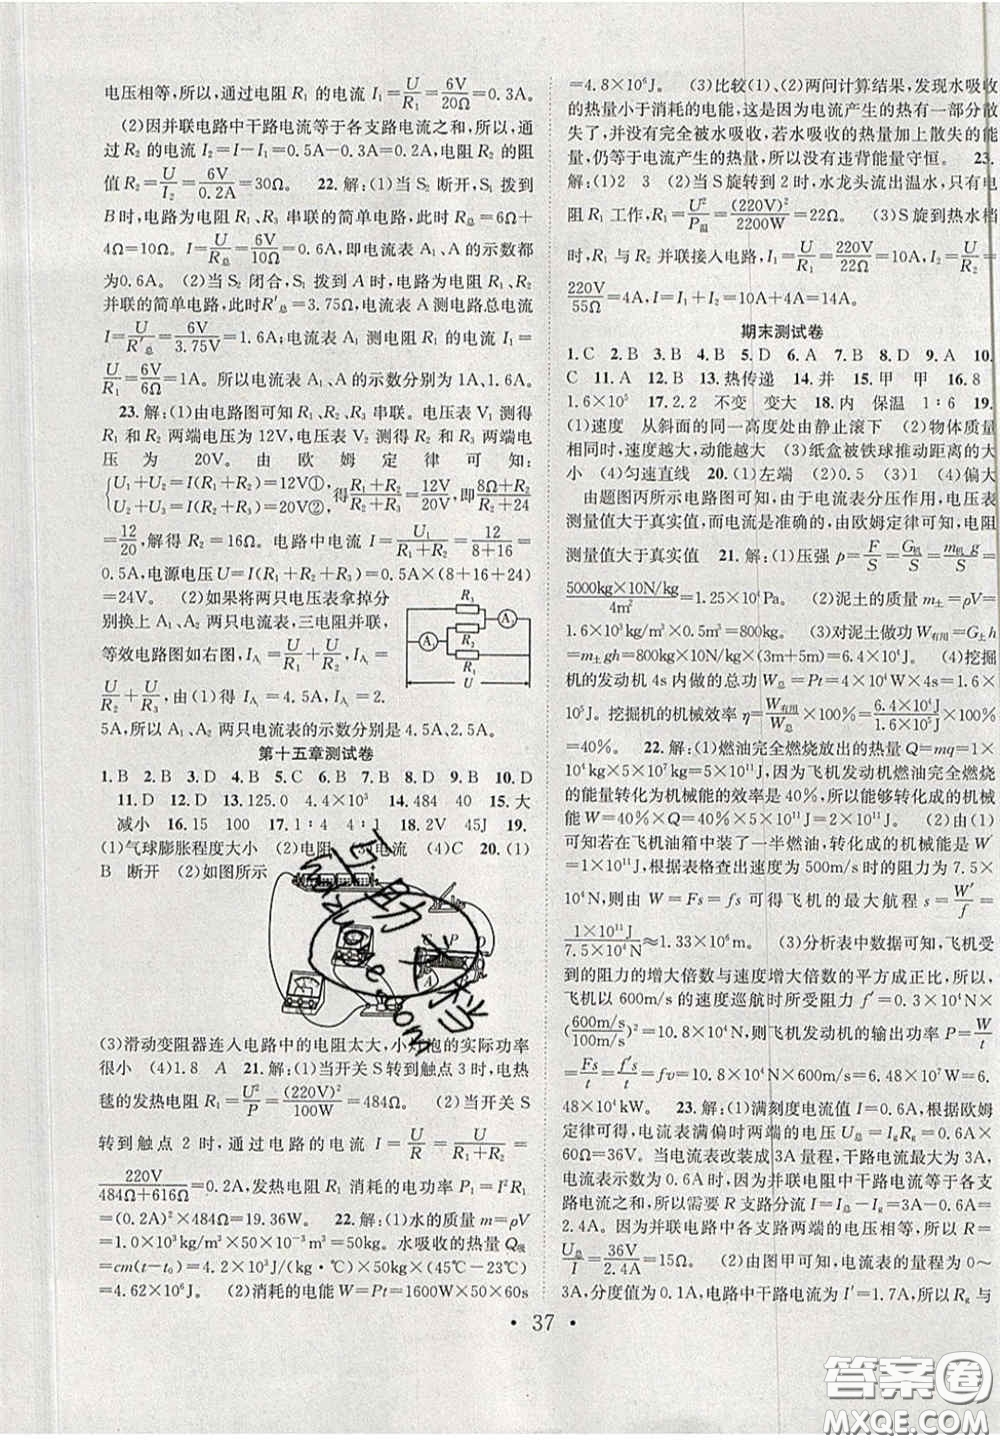 电压相等,所以,通过电阻 R₁ 的电流 I₁=U/R₁=6V/20Ω=0.3A。
(2)因并联电路中干路电流等于各支路电流之和,所以,通
过 R₂ 的电流 I₂=I−I₁=0.5A−0.3A=0.2A,电阻 R₂ 的阻
值 R₂=U/I₂=6V/0.2A=30Ω。 22.解:(1)当 S₂ 断开,S₁ 拨到
B 时,电路为电阻 R₁、R₃ 串联的简单电路,此时 R总=6Ω+
4Ω=10Ω。I=U/R总=6V/10Ω=0.6A,即电流表 A₁、A 的示数都
为 0.6A。 (2)当 S₂ 闭合,S₁ 拨到 A 时,电路为电阻 R₂、R₁
并联的简单电路,此时R′总=3.75Ω,电流表 A 测电路总电流
I=U/R′总=6V/3.75V=1.6A;电流表 A₁ 测电阻 R₁ 的电流 I₁=
U/R₁=6V/6Ω=1A。所以电流表 A₁、A 的示数分别为 1A、1.6A。
23.解:(1)由电路图可知 R₁、R₂、R₃ 串联。电压表 V₁ 测得
R₁ 和 R₂ 两端电压为 12V,电压表 V₂ 测得 R₂ 和 R₃ 两端电
压为 20V。由欧姆定律可知:
{U₁+U₂=I(R₁+R₂)=12V① U₂+U₃=I(R₂+R₃)=20V②,得(R₁+R₂)/(R₂+R₃)=12V/20V,即(8Ω+R₂)/(R₂+24)
=12/20,解得 R₂=16Ω。电路中电流 I=U₁/(R₁+R₂)=12/(8+16)=
0.5A,电源电压 U=I(R₁+R₂+R₃)=0.5A×(8+16+24)
=24V。 (2)如果将两只电压表拿掉分
别换上 A₁、A₂ 两只电流表,三电阻并联,
等效电路图如右图,I_A₁=U/R₁+U/R₂,I_A₂=
U/R₂+U/R₃,由(1)得 I_A₁=4.5A,I_A₂=2.
5A,所以 A₁、A₂ 两只电流表的示数分别是 4.5A、2.5A。
R₁
A₁
R₂
A₂
R₃
U
第十五章测试卷
1.B 2.B 3.B 4.C 5.C 6.D 7.D 8.B 9.B 10.D
11.D 12.D 13.125.0 4.4×10⁵ 14.484 40 15.大
减小 16.15 100 17.1∶4 4∶1 18.2V 45J 19.
(1)气球膨胀程度大小 (2)电阻 (3)电流 (4)C 20.(1)
B 断开 (2)如图所示
(3)滑动变阻器连入电路中的电阻太大,小灯泡的实际功率
很小 (4)1.8 A 21.解:(1)当开关 S 转到触点 3 时,电热
毯的发热电阻 R₁=U²/P=(220V)²/100W=484Ω。 (2)当开关 S
转到触点 2 时,通过电路的电流 I=U/R=U/(R₁+R₂)=
220V/(484Ω+616Ω)=0.2A,发热电阻 R₁ 消耗的电功率 P₁=I²R₁
=(0.2A)²×484Ω=19.36W。 22.解:(1)水的质量 m=ρV
=1.0×10³kg/m³×50×10⁻³m³=50kg。水吸收的热量 Q吸
=cm(t−t₀)=4.2×10³J/(kg·℃)×50kg×(45℃−23℃)
=4.62×10⁶J。 (2)消耗的电能 W=Pt=1600W×50×60s
=4.8×10⁶J。 (3)比较(1)、(2)两问计算结果,发现水吸收
的热量小于消耗的电能,这是因为电流产生的热有一部分散
失了,并没有完全被水吸收,若水吸收的热量加上散失的热
量,仍等于电流产生的热量,所以没有违背能量守恒。 23.
解:(1)2 3 (2)当 S 旋转到 2 时,水龙头流出温水,只有电
阻 R₁ 工作,R₁=U²/P温=(220V)²/2200W=22Ω。 (3)S 旋到热水档
时,R₁ 与 R₂ 并联接入电路,I₁=U/R₁=220V/22Ω=10A,I₂=U/R₂=
220V/55Ω=4A,I=I₁+I₂=10A+4A=14A。
期末测试卷
1.C 2.B 3.B 4.B 5.D 6.A 7.B 8.D 9.A 10.
C 11.A 12.B 13.热传递 14.并 15.甲 甲 16.8
1.6×10⁵ 17.2.2 不变 变大 18.内 保温 1∶6 19.
(1)速度 从斜面的同一高度处由静止滚下 (2)物体质量
相同时,速度越大,动能越大 (3)纸盒被铁球推动距离的大
小 (4)匀速直线 20.(1)左端 (2)0.5 (3)1 (4)偏大
由题图丙所示电路图可知,由于电流表分压作用,电压表
测量值大于真实值,而电流是准确的,由欧姆定律可知,电阻
测量值大于真实值 21.解:(1)压强 p=F/S=G机/S=m机g/S=
5000kg×10N/kg/4m²=1.25×10⁴Pa。 (2)泥土的质量 m土=ρV=
1.6×10³kg/m³×0.5m³=800kg。 (3)对泥土做功 W有用=G土h
=m土gh=800kg×10N/kg×(3m+5m)=6.4×10⁴J。 (4)挖掘
机的发动机 4s 内做的总功 W总=Pt=4×10⁴W×4s=1.6×
10⁵J。挖掘机的机械效率 η=W有用/W总×100%=6.4×10⁴J/1.6×10⁵J×100%
=40%。 22.解:(1)燃油完全燃烧放出的热量 Q=mq=1×
10⁴kg×5×10⁷J/kg=5×10¹¹J,因为飞机发动机燃油完全燃烧
的能量转化为机械能的效率是 40%,所以能转化成的机械能
W=40%×Q=40%×5×10¹¹J=2×10¹¹J。 (2)由(1)
可知若在飞机油箱中装了一半燃油,转化成的机械能 W′=
1×10¹¹J,根据表格查出速度为 500m/s 时的阻力为 7.5×
10⁴N,则由 W=Fs=fs 可得飞机的最大航程 s=W′/f=
1×10¹¹J/7.5×10⁴N≈1.33×10⁶m。 (3)分析表中数据可知,飞机受
到的阻力的增大倍数与速度增大倍数的平方成正比,所以,
飞机以 600m/s 的速度巡航时所受阻力 f′=0.3×10⁴N×
(600m/s/100m/s)²=10.8×10⁴N,则飞机发动机的输出功率 P=W/t=
Fs/t=f′s/t=fv=10.8×10⁴N×600m/s=6.48×10⁷W=6.
48×10⁴kW。 23.解:(1)满刻度电流值 I=0.6A,根据欧姆
定律可知,电流表满偏时两端的电压 U总=IgRg=0.6A×
60Ω=36V。当电流表改装成 3A 量程,干路电流等于 3A,
电流表示数为 0.6A,因为并联电路中干路电流等于各
支路电流之和,所以需要 R 支路分流 I=I总−Ig=3A−0.6A=
2.4A。因为并联电路中各支路两端的电压相等,所以 R=
U总/I=36V/2.4A=15Ω。 (2)由图甲可知,电流表的量程为 0~
3A,分度值为 0.1A,电路中干路电流为 I′=1.7A,所以 Rg 与
· 37 ·
答案圈
MXQE.COM